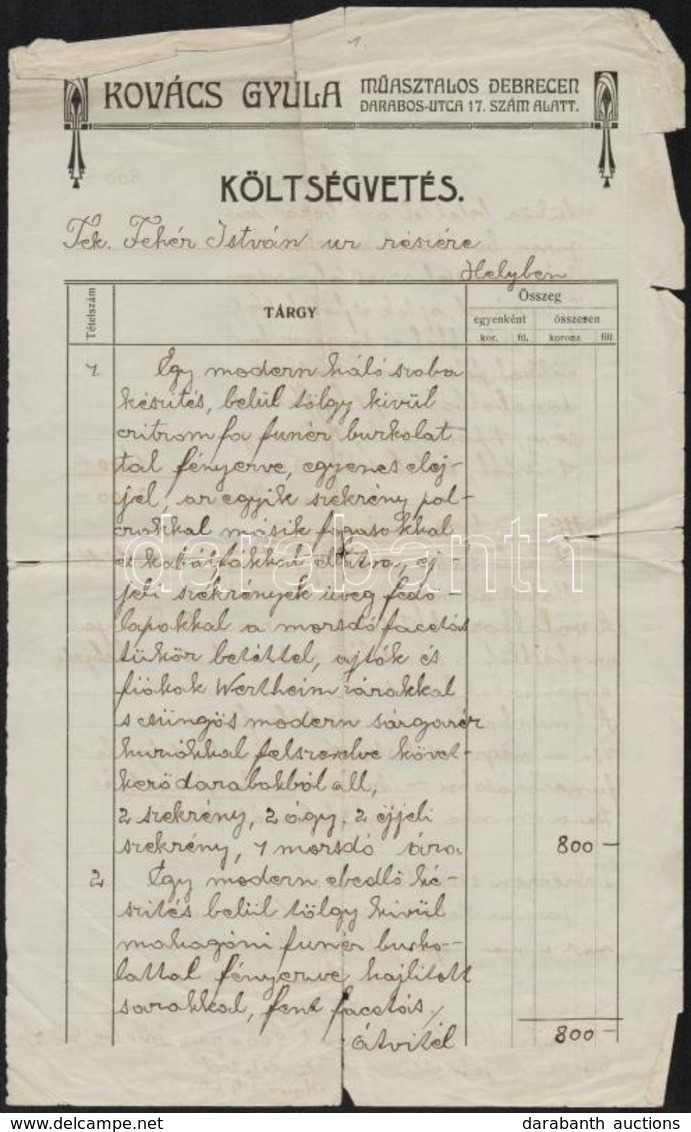 1.
KOVÁCS GYULA MŰASZTALOS DEBRECEN
DARABOS-UTCA 17. SZÁM ALATT.
KÖLTSÉGVETÉS.
Tek. Fehér István ur részére
Helyben
Tételszám TÁRGY Összeg
egyenként összesen
kor. fil. korona fill
1 Egy modern háló szoba
készités, belül tölgy kivül
citromfa funér burkolat-
tal fényezve, egyenes elej-
jel, az egyik szekrény pol-
czokkal másik fogasokkal
és ellátva, éj-
jeli szekrények üveg fedő-
lapokkal a mosdó facetás
tükör betéttel, ajtók és
fiókok Wertheim zárakkal
s csüngös modern sárgaréz
huzókkal felszerelve követ-
kező darabokból áll,
2 szekrény, 2 ágy, 2 éjjeli
szekrény, 1 mosdó ára 800 —
2 Egy modern ebédlő ké-
szités belül tölgy kivül
mahagóni funér burko-
lattal fényezve hajlitott
sarakkal, fent facetás
átvitel 800 —
darabanth
darabanth auctions